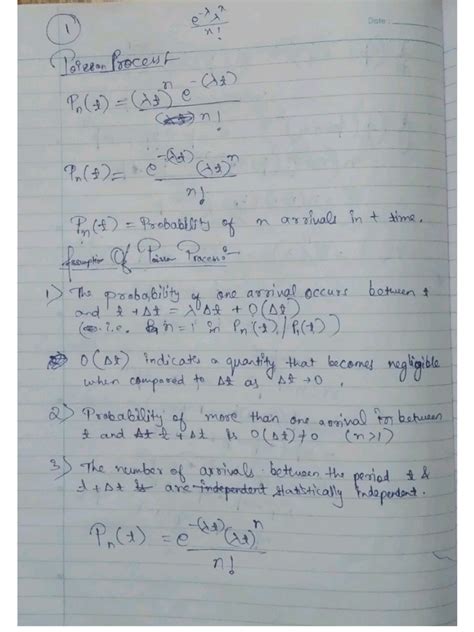 e^-λ λ^n / n!
Date :
1
Poisson Process
P_n(t) = (λt)^n e^-(λt) / n!
P_n(t) = e^-(λt) (λt)^n / n!
P_n(t) = Probability of n arrivals in t time.
Assumption Of Poisson Process:
1) The probability of one arrival occurs between t
and t + Δt = λΔt + O(Δt)
(i.e. n=1 in P_n(t) / P_1(t))
O(Δt) indicates a quantity that becomes negligible
when compared to Δt as Δt → 0.
2) Probability of more than one arrival between
t and t + Δt is O(Δt) ≠ 0 (n>1)
3) The number of arrivals between the period t &
t + Δt are statistically independent.
P_n(t) = e^-(λt) (λt)^n / n!